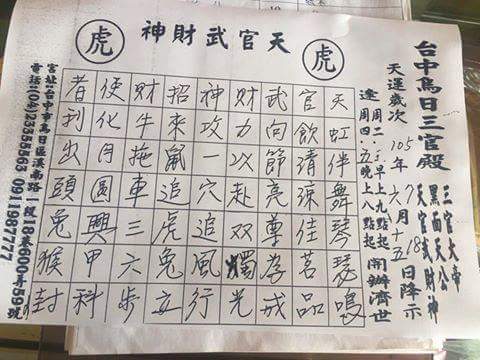 虎
天官武財神
虎
台中烏日三官殿
三官大帝
黑面天公
天官武財神
天運歲次105年六月十五日降示
7 18
逢周二、三早上九點起
周四、五晚上八點起
開辦濟世
天虹伴舞琴瑟鳴
官飲清涼佳茗品
武向節亮尊孝戒
財力次赴双燭光
神攻一穴追風行
招來鼠追虎兔立
財牛拖車三六步
使化月圓興甲科
者刊出頭兔猴封
宮址:台中市烏日區溪南路一段18巷600弄59號
電話:(04)23355563